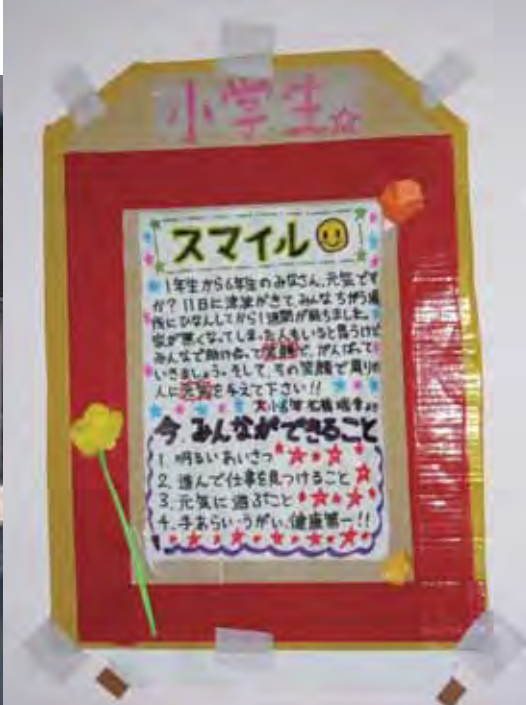 小学生☆
スマイル
1年生から6年生のみなさん、元気です
か?11日に津波がきて、みんなちがう場
所にひなんしてから1週間が経ちました。
家が無くなってしまった人もいると思うけど
みんなで助け合って笑顔で、がんばって
いきましょう。そして、その笑顔で周りの
人に元気を与えて下さい!!
今、みんなができること
1. 明るいあいさつ
2. 進んで仕事を見つけること
3. 元気に遊ぶこと
4. 手あらい、うがい、健康第一!!